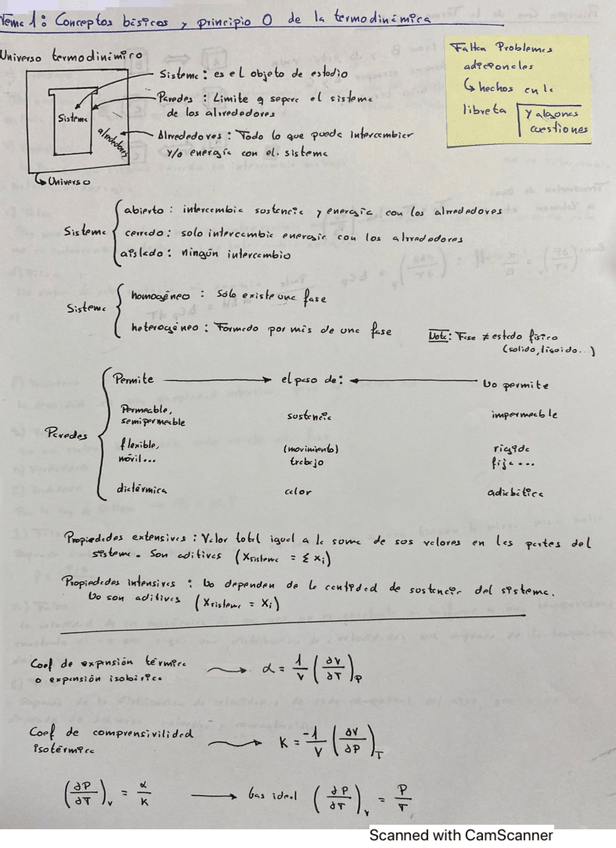 Tema 1: Conceptos básicos y principio 0 de la termodinámica
Falten Problemas
adicionales
↳ hechos en la
libreta
y algunas
cuestiones
Universo termodinámico
Sistema
alrededores
↳ Universo
Sistema: es el objeto de estudio
Paredes: Limite q separa el sistema
de los alrededores
Alrededores: Todo lo que puede intercambiar
y/o energía con el sistema
Sistema
abierto: intercambia sustancia y energía con los alrededores
cerrado: solo intercambia energia con los alrededores
aislado: ningún intercambio
Sistema
homogéneo: Sólo existe una fase
heterogéneo: Formado por más de una fase
Nota: Fase ≠ estado físico
(solido, liquido...)
Paredes
Permite → el paso de: ← No permite
Permeable, semipermeable sustancia impermeable
flexible, móvil... (movimiento) trabajo rígida fija...
diatérmica calor adiabática
Propiedades extensivas: Valor total igual a la suma de sus valores en las partes del
sistema. Son aditivas (Xsistema = Σ xi)
Propiedades intensivas: No dependen de la cantidad de sustancia del sistema.
No son aditivas (Xsistema = Xi)
Coef de expnsión térmica
o expansión isobárica → α = 1/V (∂V/∂T)P
Coef de comprensivilidad
isotérmica → K = -1/V (∂V/∂P)T
(∂P/∂T)v = α/K → Gas ideal (∂P/∂T)v = P/T
Scanned with CamScanner